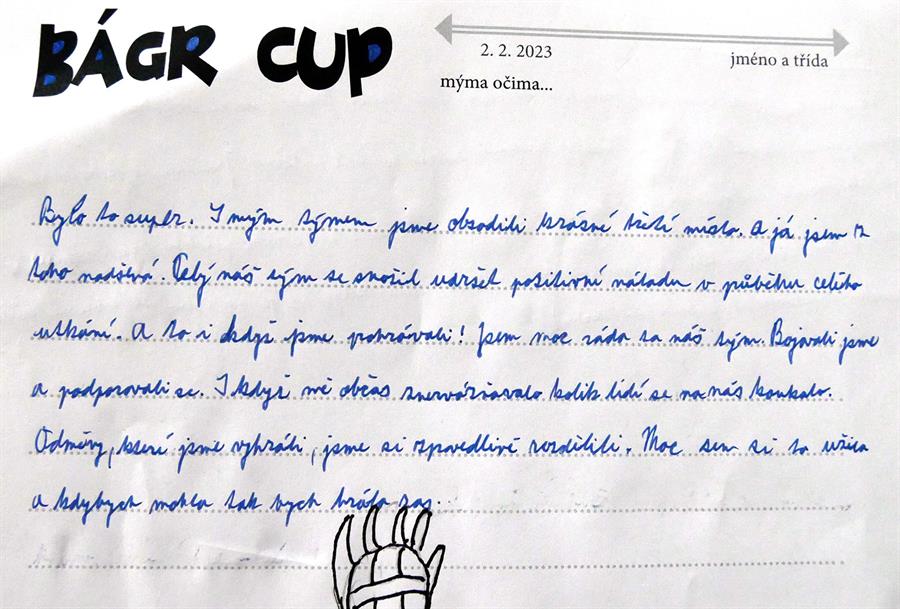 BÁGR CUP
2. 2. 2023
jméno a třída
mýma očima...
Bylo to super. S mým týmem jsme obsadili krásné třetí místo. A já jsem z
toho nadšená. Celý náš tým se snažil udržet pozitivní náladu v průběhu celého
utkání. A to i když jsme prohrávali! Jsem moc ráda za náš tým. Bojovali jsme
a podporovali se. I když mě občas znervózňovalo kolik lidí se na nás koukalo.
Odměny, které jsme vyhráli, jsme si spravedlivě rozdělili. Moc sem si to užila
a kdybych mohla tak bych hrála zas.